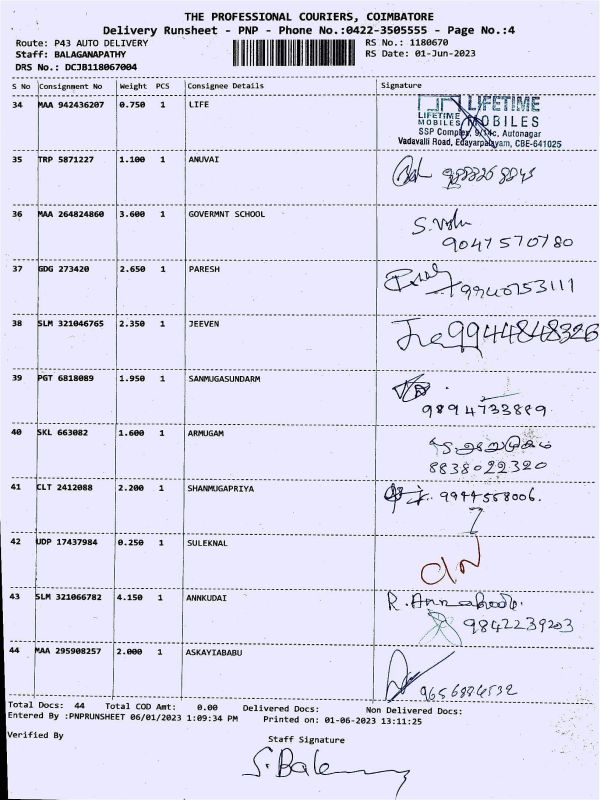 THE PROFESSIONAL COURIERS, COIMBATORE
Delivery Runsheet - PNP - Phone No.:0422-3505555 - Page No.:4
Route: P43 AUTO DELIVERY RS No.: 1180670
Staff: BALAGANAPATHY RS Date: 01-Jun-2023
DRS No.: DCJB118067004
S No Consignment No Weight PCS Consignee Details Signature
34 MAA 942436207 0.750 1 LIFE
LIFETIME
LIFETIME
MOBILES MOBILES
SSP Complex, 9/14c, Autonagar
Vadavalli Road, Edayarpalayam, CBE-641025
35 TRP 5871227 1.100 1 ANUVAI
36 MAA 264824860 3.600 1 GOVERMNT SCHOOL
9047570780
37 GDG 273420 2.650 1 PARESH
9940753111
38 SLM 321046765 2.350 1 JEEVEN
9944848326
39 PGT 6818089 1.950 1 SANMUGASUNDARM
9894733889
40 SKL 663082 1.600 1 ARMUGAM
8838022320
41 CLT 2412088 2.200 1 SHANMUGAPRIYA
9944568006.
42 UDP 17437984 0.250 1 SULEKNAL
43 SLM 321066782 4.150 1 ANNKUDAI
9842239203
44 MAA 295908257 2.000 1 ASKAYIABABU
Total Docs: 44 Total COD Amt: 0.00 Delivered Docs: Non Delivered Docs:
Entered By :PNPRUNSHEET 06/01/2023 1:09:34 PM Printed on: 01-06-2023 13:11:25
Verified By
Staff Signature